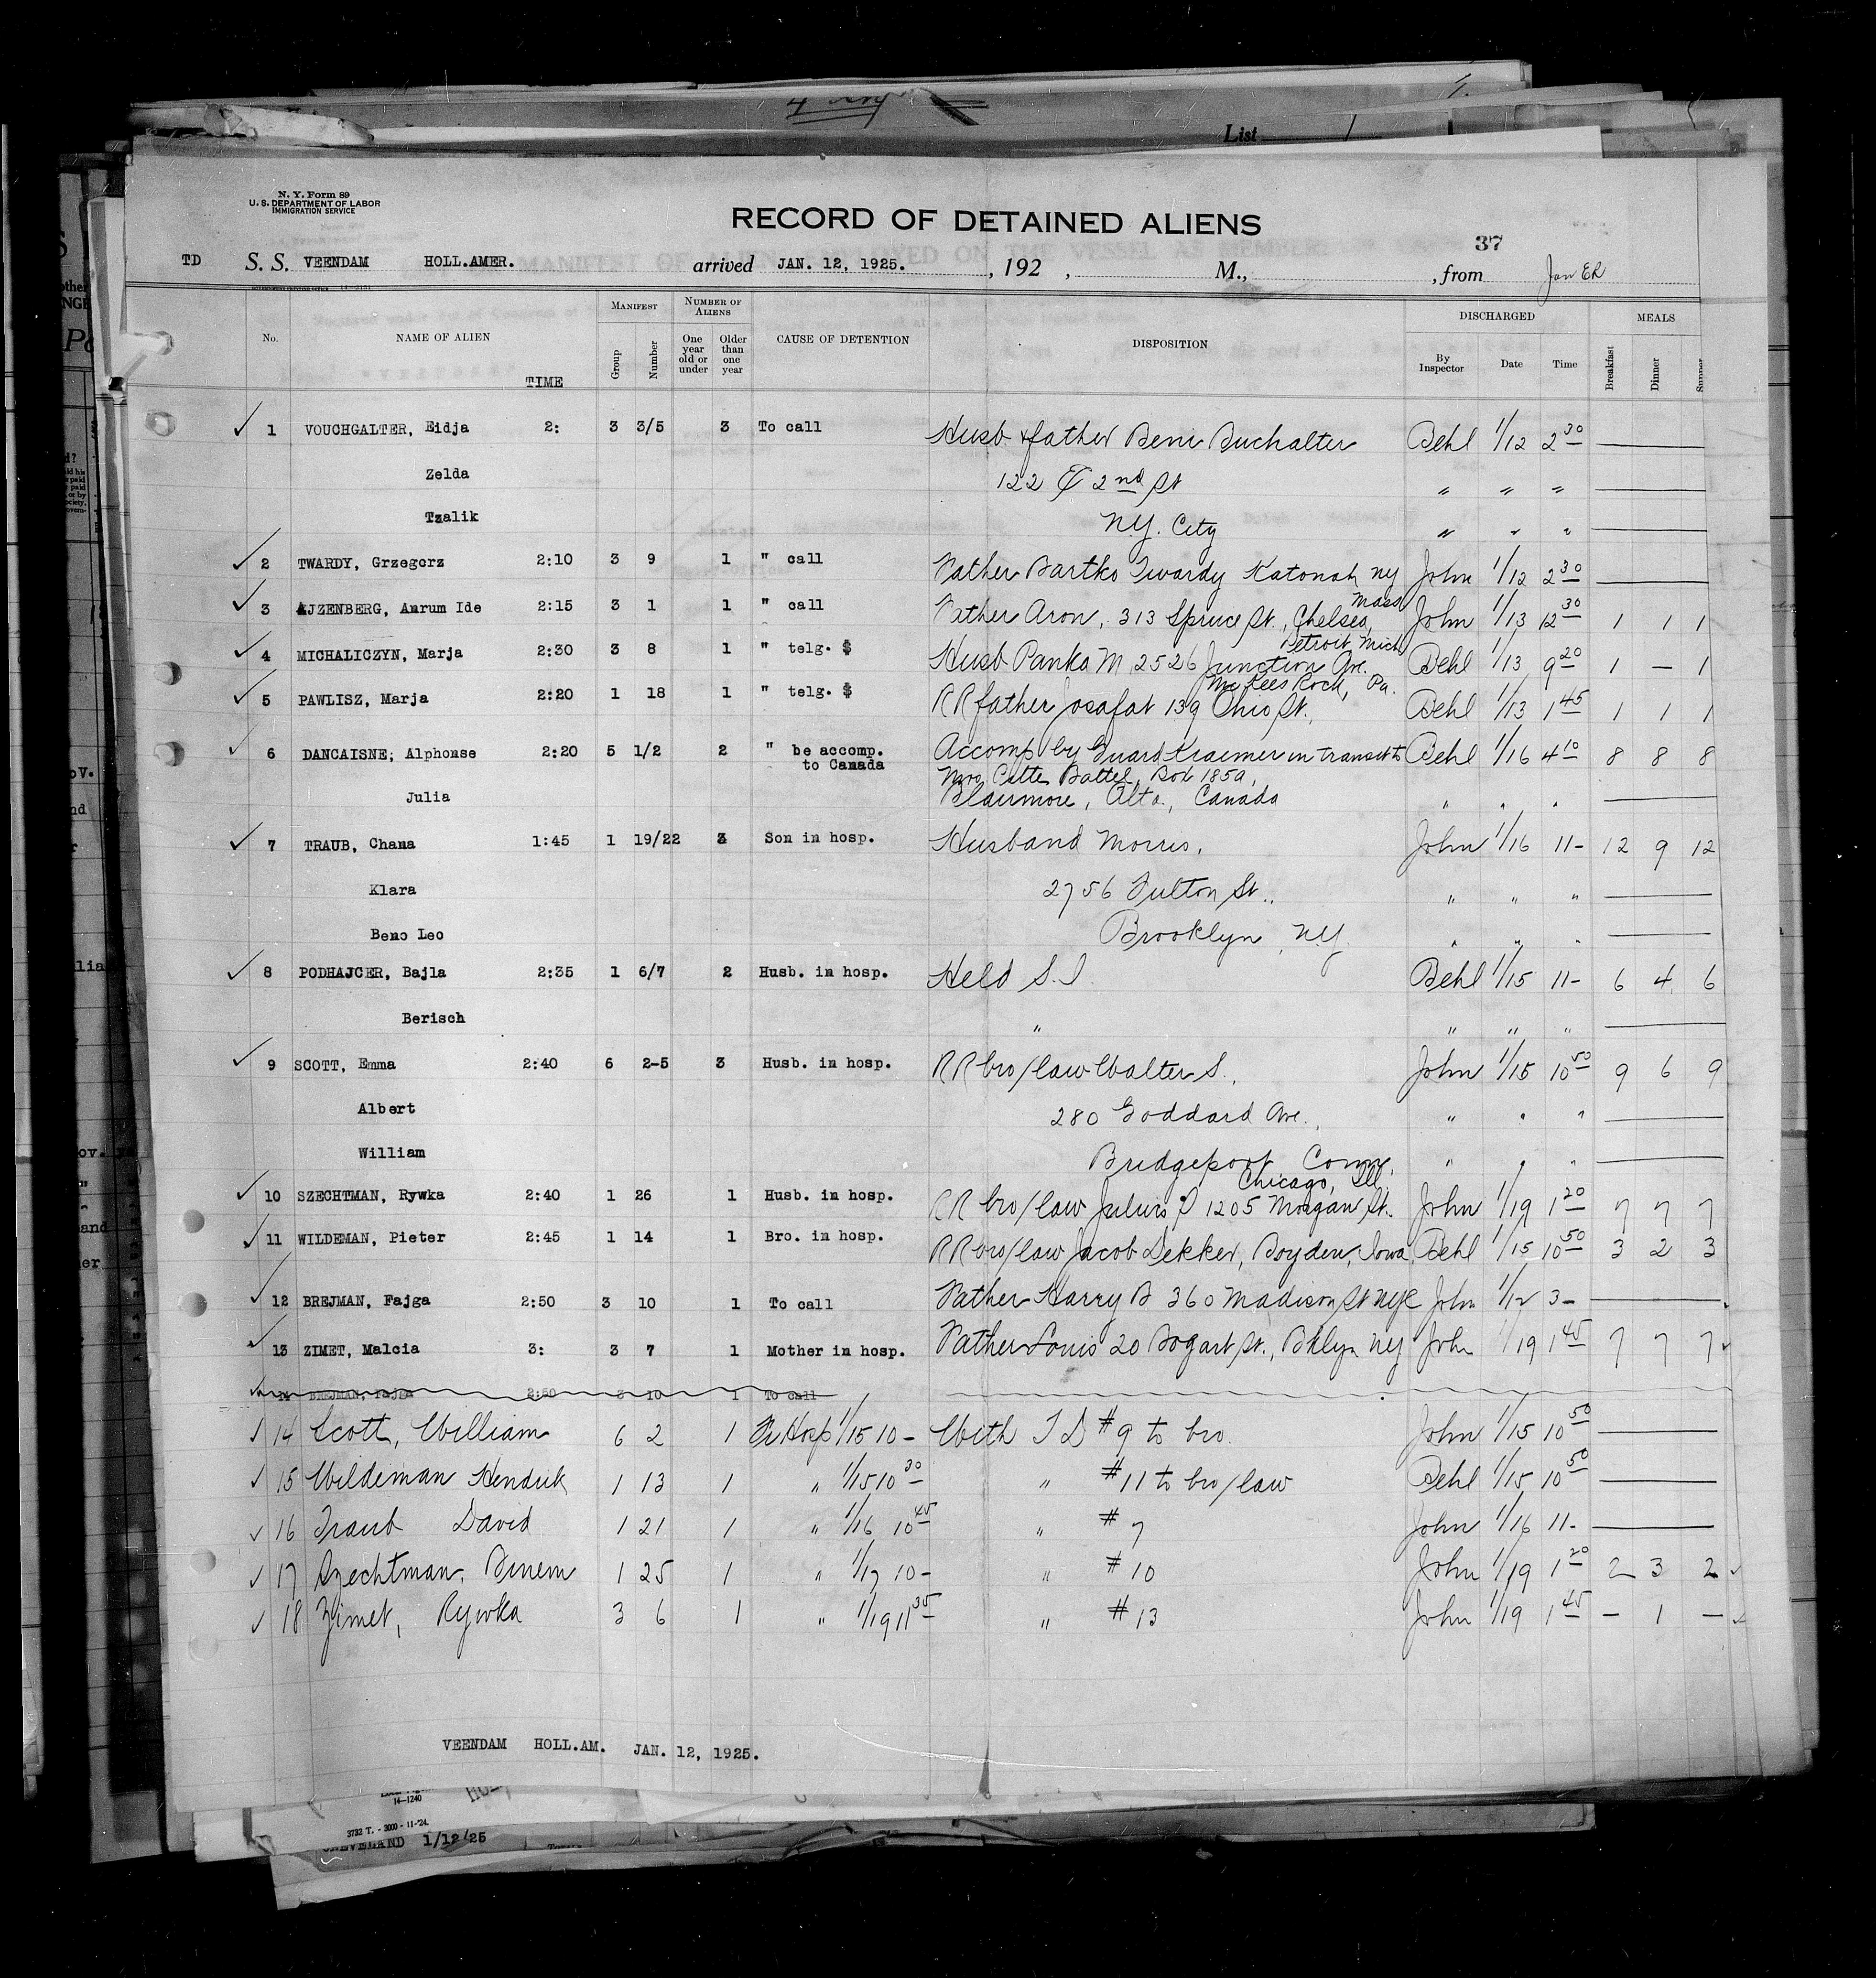 List 1
N. Y. Form 89
U. S. DEPARTMENT OF LABOR
IMMIGRATION SERVICE
RECORD OF DETAINED ALIENS
37
TD S. S. VEENDAM HOLL.AMER. arrived JAN. 12, 1925. , 192 , M., , from
No. NAME OF ALIEN TIME MANIFEST Group Number NUMBER OF ALIENS One year old or under Older than one year CAUSE OF DETENTION DISPOSITION DISCHARGED By Inspector Date Time MEALS Breakfast Dinner Supper
✓ 1 VOUCHGALTER, Eidja 2: 3 3/5 3 To call Husb & father Beni Buchalter Behl 1/12 2 30
Zelda 122 E 2nd St " " "
Tzalik N.Y. City " " "
✓ 2 TWARDY, Grzegorz 2:10 3 9 1 " call Father Bartko Twardy Katonah NY John 1/12 2 30
✓ 3 AJZENBERG, Anrum Ide 2:15 3 1 1 " call Father Aron, 313 Spruce St., Chelsea, Mass John 1/13 12 30 1 1 1
✓ 4 MICHALICZYN, Marja 2:30 3 8 1 " telg. $ Husb Panko M 2526 Junction Ave. Detroit Mich Behl 1/13 9 20 1 — 1
✓ 5 PAWLISZ, Marja 2:20 1 18 1 " telg. $ RR father Josafat 139 Ohio St., McKees Rock, Pa. Behl 1/13 1 45 1 1 1
✓ 6 DANCAISNE; Alphonse 2:20 5 1/2 2 " be accomp. to Canada Accomp by Guard Kraemer in transit to Behl 1/16 4 10 8 8 8
Mrs Battel, Box 185a,
Julia Blairmore, Alta, Canada " " "
✓ 7 TRAUB, Chana 1:45 1 19/22 3 Son in hosp. Husband Morris, John 1/16 11- 12 9 12
Klara 2756 Fulton St., " " "
Beno Leo Brooklyn, N.Y. " " "
✓ 8 PODHAJCER, Bajla 2:35 1 6/7 2 Husb. in hosp. Held S.I. Behl 1/15 11- 6 4 6
Berisch " " " "
✓ 9 SCOTT, Emma 2:40 6 2-5 3 Husb. in hosp. RR bro/law Walter S., John 1/15 10 50 9 6 9
Albert 280 Goddard Ave., " " "
William Bridgeport, Conn. " " "
✓ 10 SZECHTMAN, Rywka 2:40 1 26 1 Husb. in hosp. RR bro/law Julius S 1205 Morgan St. Chicago, Ill. John 1/19 1 20 7 7 7
✓ 11 WILDEMAN, Pieter 2:45 1 14 1 Bro. in hosp. RR bro/law Jacob Dekker, Boyden, Iowa Behl 1/15 10 50 3 2 3
✓ 12 BREJMAN, Fajga 2:50 3 10 1 To call Father Harry B 360 Madison St NYC John 1/12 3-
✓ 13 ZIMET, Malcia 3: 3 7 1 Mother in hosp. Father Louis 20 Bogart St., Bklyn NY John 1/19 1 45 7 7 7 ✓
✓ 14 BREJMAN, Fajga 2:50 3 10 1 To call
✓ 14 Scott, William 6 2 1 Fr Hosp 1/15 10- With TD #9 to bro. John 1/15 10 50
✓ 15 Wildeman Hendrik 1 13 1 " 1/15 10 30 " #11 to bro/law Behl 1/15 10 50
✓ 16 Traub David 1 21 1 " 1/16 10 45 " #7 John 1/16 11-
✓ 17 Szechtman, Binem 1 25 1 " 1/17 10- " #10 John 1/19 1 20 2 3 2 ✓
✓ 18 Zimet, Rywka 3 6 1 " 1/19 11 35 " #13 John 1/19 1 45 — 1 — ✓
VEENDAM HOLL.AM. JAN. 12, 1925.
14-1240
3732 T. - 3000 - 11-'24.
CLEVELAND 1/12/25